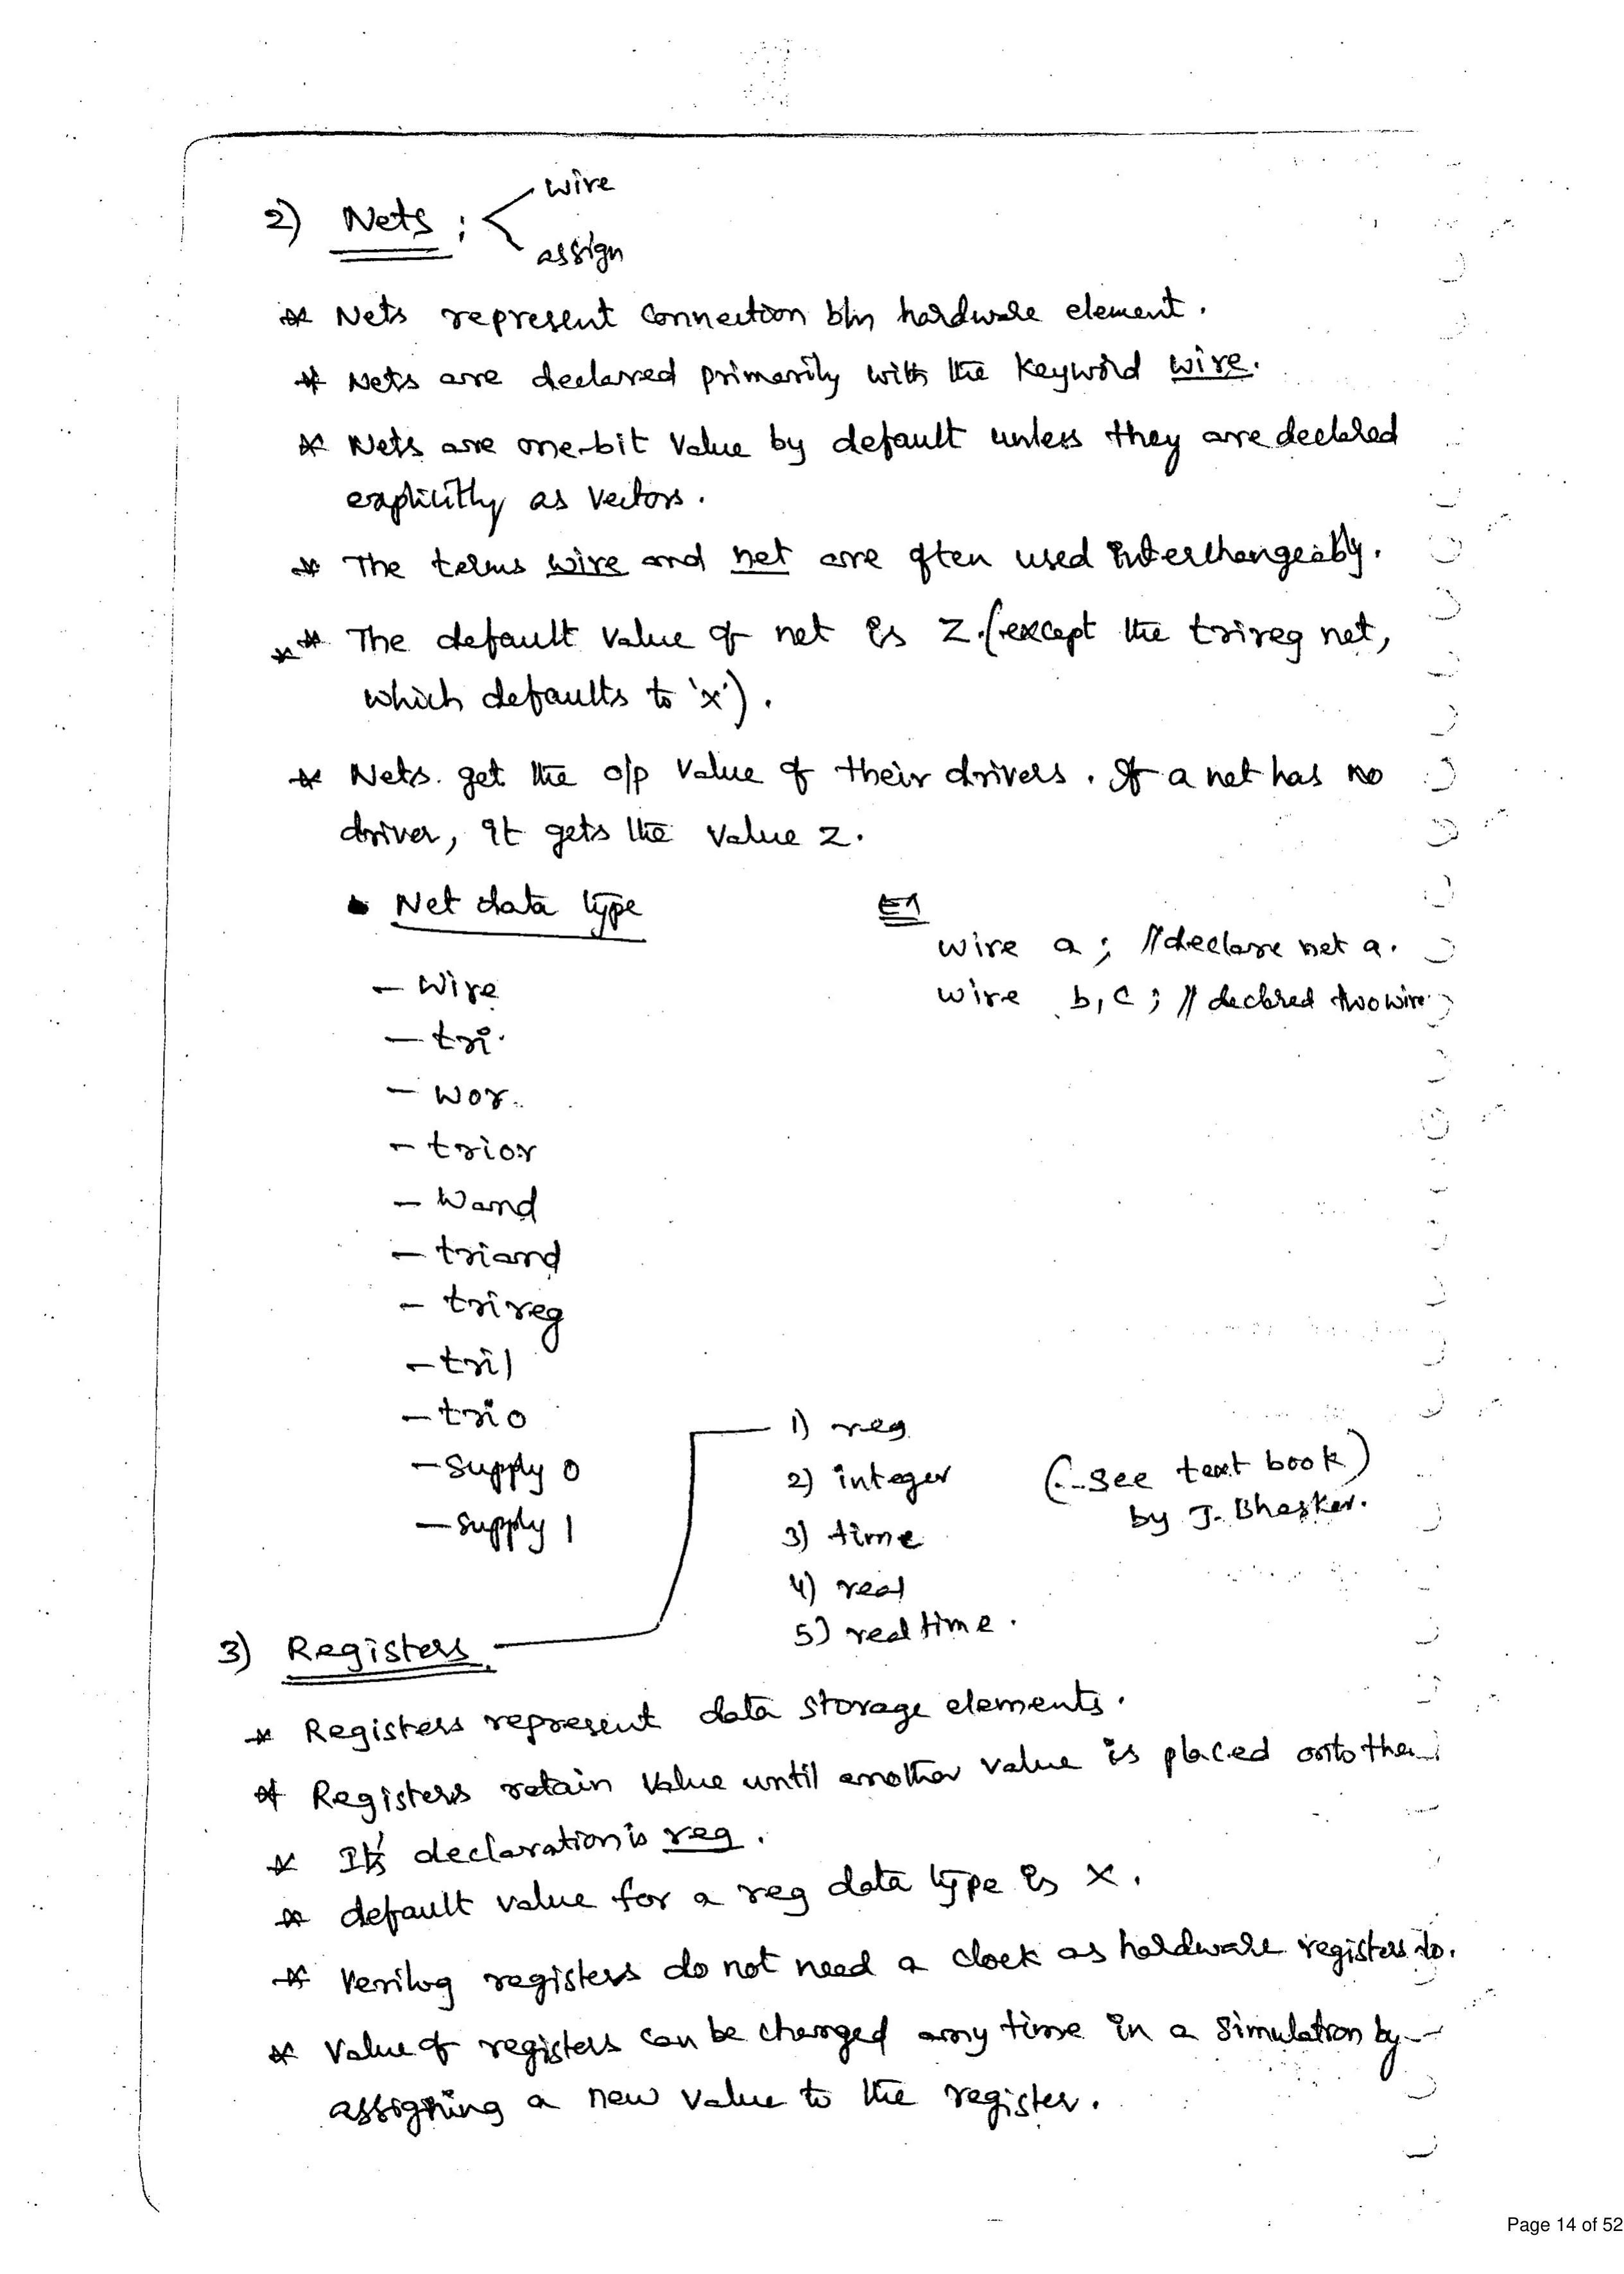 2) Nets : wire
assign
* Nets represent connection b/n hardware element.
* Nets are declared primarily with the keyword wire.
* Nets are one-bit value by default unless they are declared
explicitly as vectors.
* The terms wire and net are often used interchangeably.
** The default value of net is z.(except the trireg net,
which defaults to 'x').
* Nets. get the o/p value of their drivers. If a net has no
driver, it gets the value z.
• Net data type
- wire
- tri
- wor
- trior
- wand
- triand
- trireg
- tri1
- tri0
- supply 0
- supply 1
Ex
wire a; //declare net a.
wire b,c; // declared two wire
1) reg
2) integer
3) time
4) real
5) realtime.
(- see text book)
by J. Bhasker.
3) Registers
* Registers represent data storage elements.
* Registers retain value until another value is placed onto them
* It's declaration is reg.
* default value for a reg data type is x.
* Verilog registers do not need a clock as hardware registers do.
* Value of registers can be changed any time in a simulation by
assigning a new value to the register.
Page 14 of 52